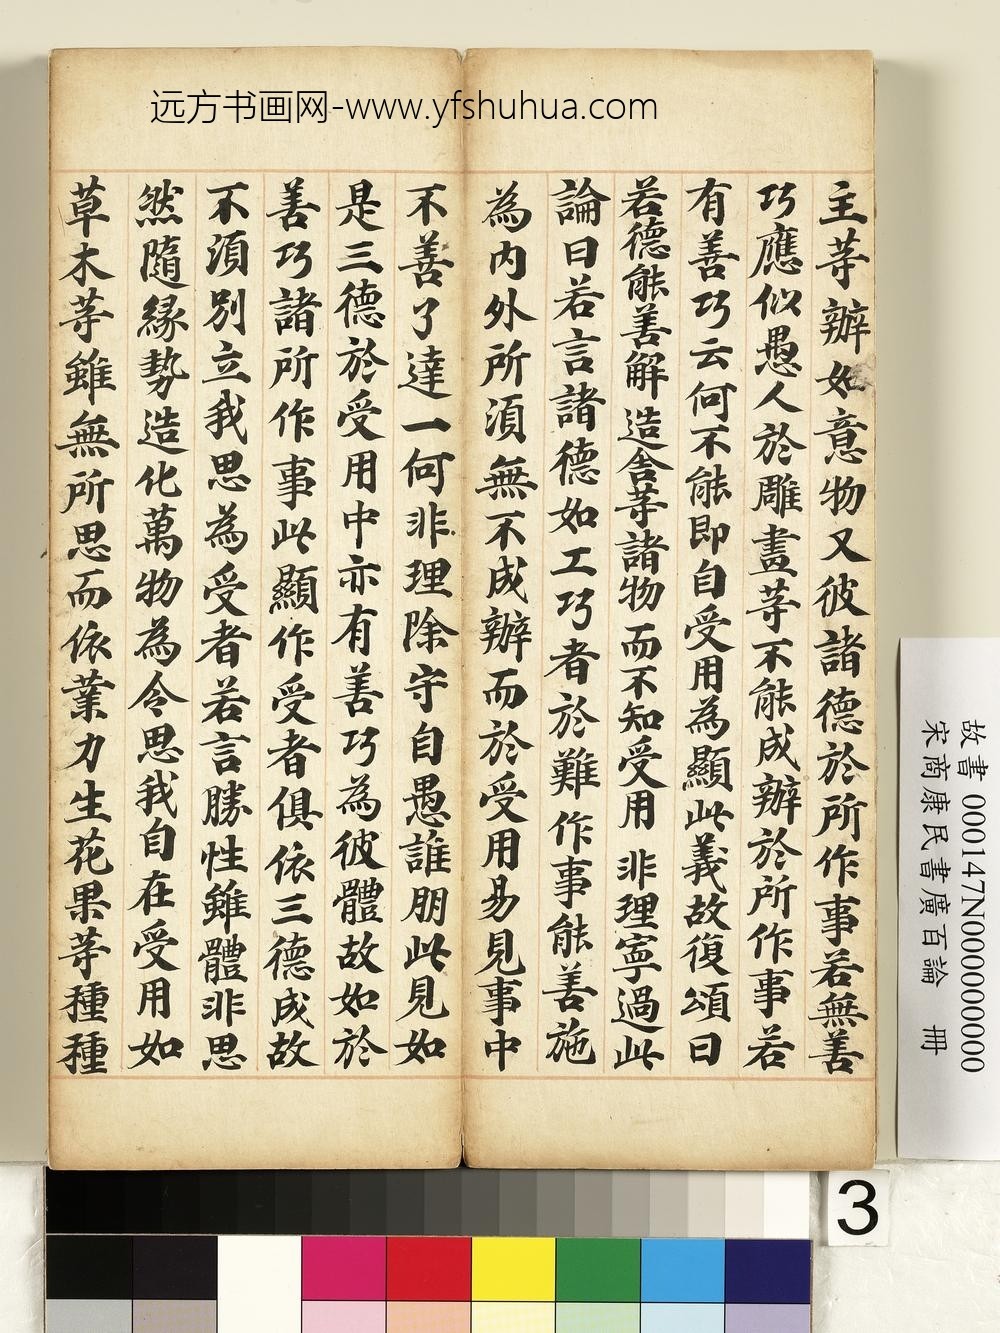 远方书画网-www.yfshuhua.com
主等辦如意物又彼諸德於所作事若無善
巧應似愚人於雕畫等不能成辦於所作事若
有善巧云何不能即自受用為顯此義故復頌曰
若德能善解 造舍等諸物 而不知受用 非理寧過此
論曰若言諸德如工巧者於難作事能善施
為內外所須無不成辦而於受用易見事中
不善了達一何非理除守自愚誰朋此見如
是三德於受用中亦有善巧為彼體故如於
善巧諸所作事此顯作受者俱依三德成故
不須別立我思為受者若言勝性雖體非思
然隨緣勢造化萬物為令思我自在受用如
草木等雖無所思而依業力生花果等種種
故書 000147N000000000
宋商康民書廣百論 冊
3